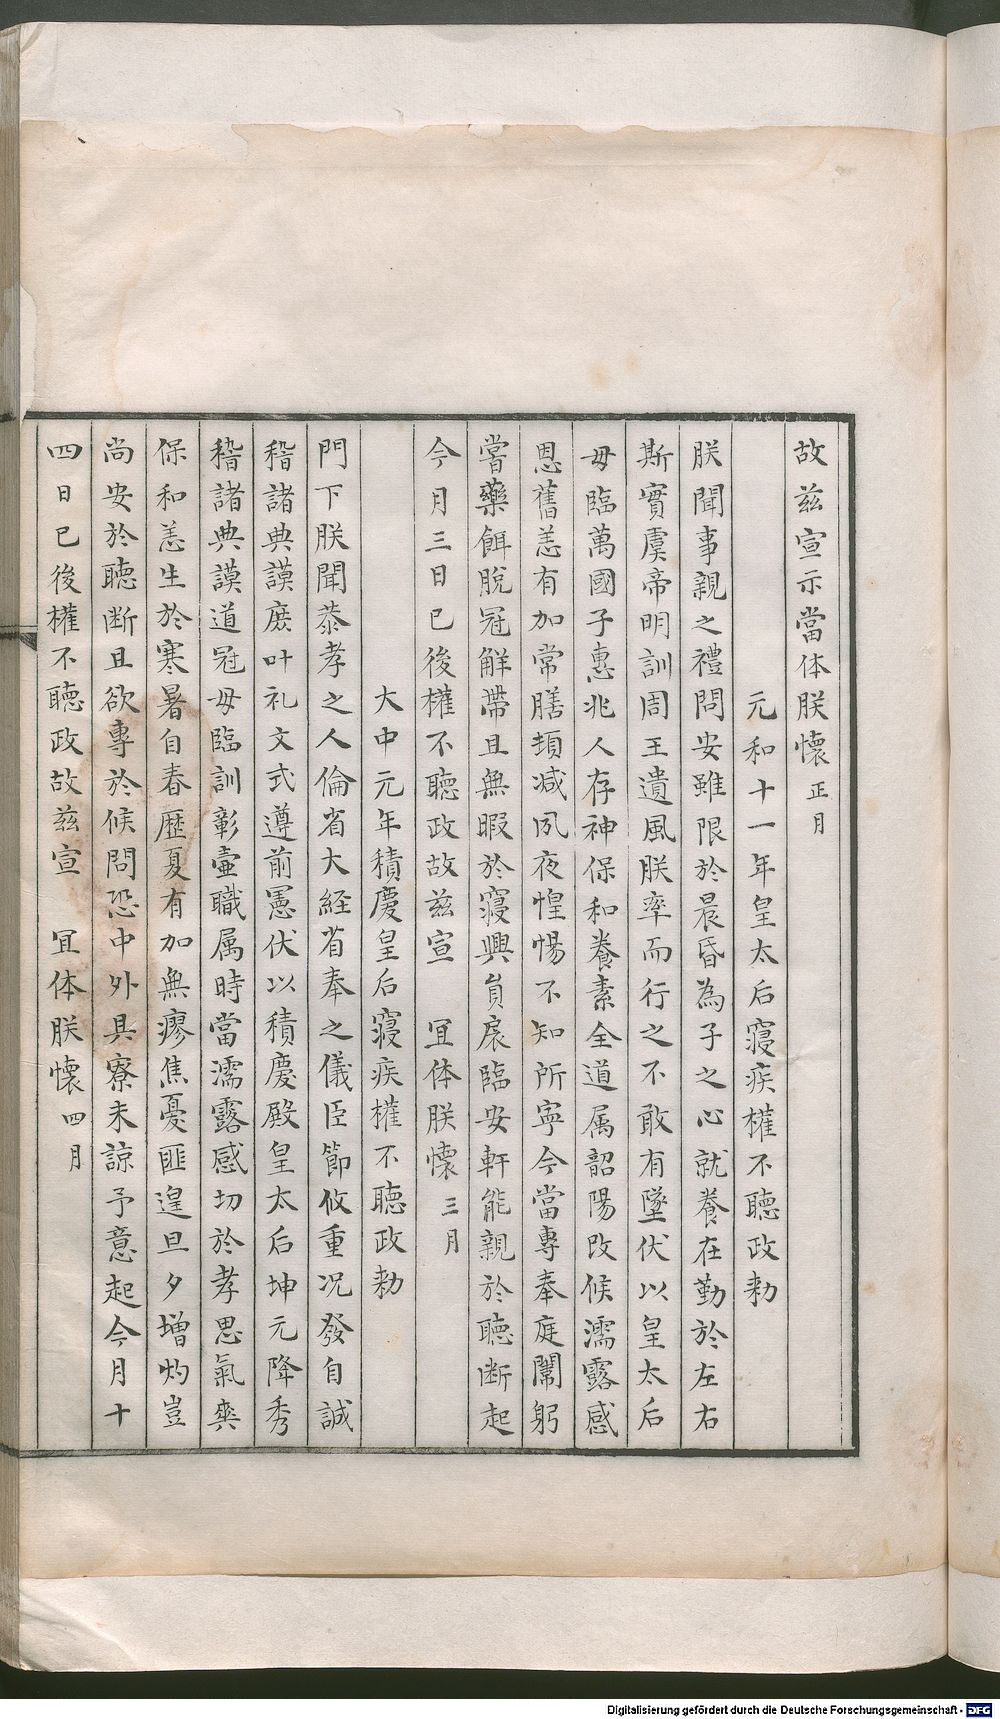 故兹宣示當体朕懷正月
元和十一年皇太后寢疾權不聽政勑
朕聞事親之禮問安雖限於晨昏為子之心就養在勤於左右
斯實虞帝明訓周王遺風朕率而行之不敢有墜伏以皇太后
毋臨萬國子惠兆人存神保和養素全道属韶陽改候濡露感
恩舊恙有加常膳頓减夙夜惶惕不知所寕今當專奉庭闈躬
嘗藥餌脫冠解帶且無暇於寢興負扆臨安軒能親於聽断起
今月三日已後權不聽政故兹宣　宜体朕懷三月
大中元年積慶皇后寢疾權不聽政勑
門下朕聞恭孝之人倫省大経省奉之儀臣節攸重况發自誠
稽諸典謨庶叶礼文式遵前憲伏以積慶殿皇太后坤元降秀
稽諸典謨道冠毋臨訓彰壼職属時當濡露感切於孝思氣爽
保和恙生於寒暑自春歷夏有加無瘳焦憂匪遑旦夕增灼豈
尚安於聽断且欲專於候問恐中外具寮未諒予意起今月十
四日已後權不聽政故兹宣　宜体朕懷四月
Digitalisierung gefördert durch die Deutsche Forschungsgemeinschaft - DFG